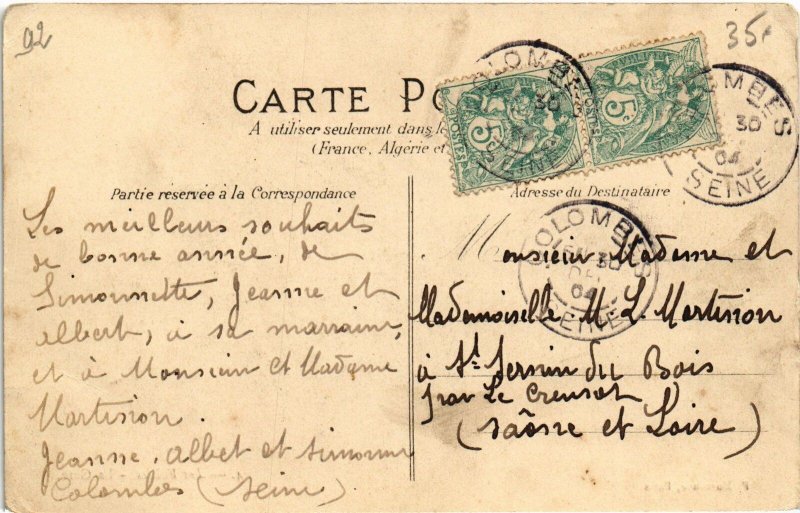 92
35
CARTE PO
A utiliser seulement dans le
(France, Algérie et
Partie réservée à la Correspondance
Les meilleurs souhaits
de bonne année, de
Simonnette, Jeanne et
Albert, à sa marraine,
et à Monsieur et Madame
Martinon.
Jeanne, Albet et Simonne
Colombes (Seine)
Adresse du Destinataire
Monsieur Madame et
Mademoiselle M. L. Martinon
à St. Sernin du Bois
par Le Creusot
(Saône et Loire)
POSTES
5c
POSTES
5c
COLOMBES
30
SEINE
COLOMBES
30
04
SEINE
COLOMBES
30
DEC
04
SEINE